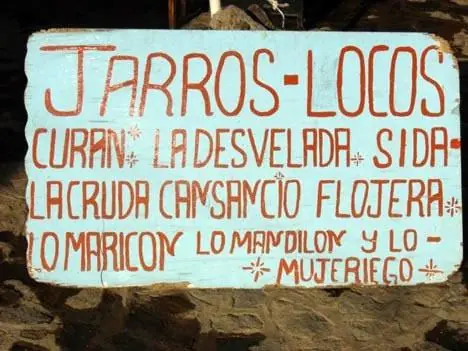 JARROS-LOCOS
CURAN * LA DESVELADA * SIDA-
LA CRUDA CANSANCIO FLOJERA *
LO MARICON LO MANDILON Y LO -
* MUJERIEGO *